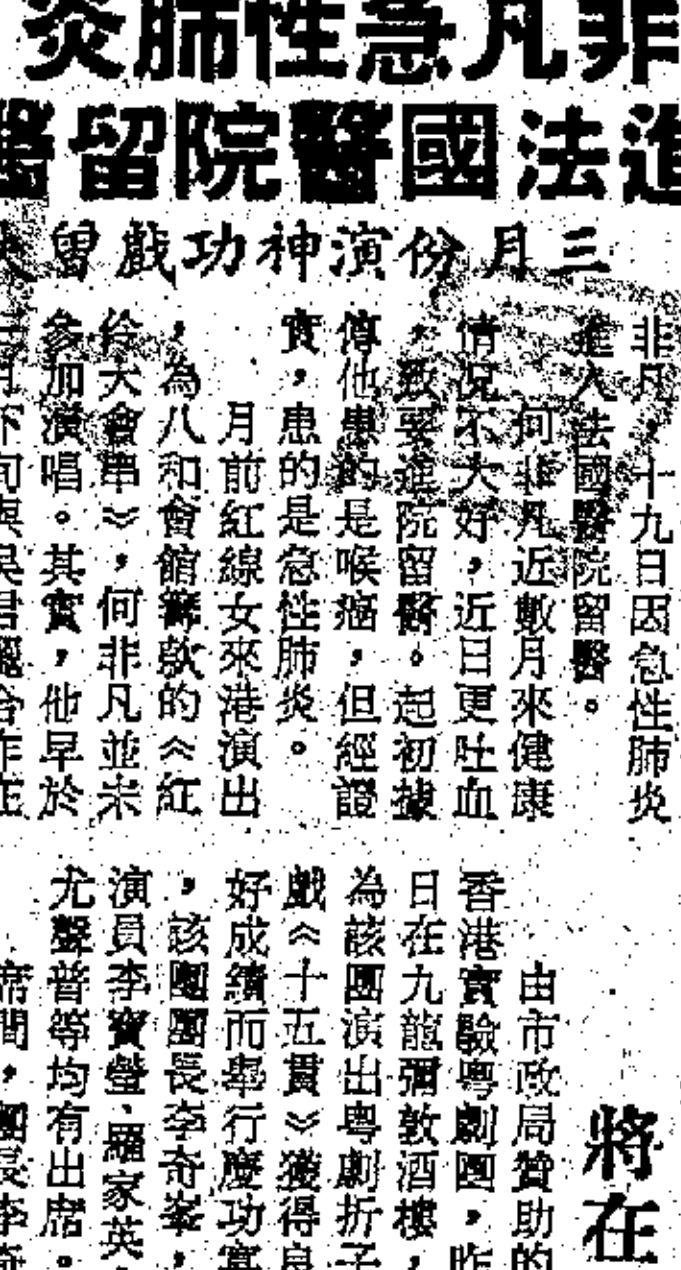 非凡急性肺炎
進法國醫院留醫
三月份演神功戲曾
非凡，十九日因急性肺炎
進入法國醫院留醫。
何非凡近數月來健康
情況不大好，近日更吐血
，致要進院留醫。起初據
傳他患的是喉癌，但經證
實，患的是急性肺炎。
月前紅線女來港演出
，為八和會館籌款的《紅
伶大會串》，何非凡並未
參加演唱。其實，他早於
三月下旬與吳君麗合作在
將在
由市政局贊助的
香港實驗粵劇團，昨
日在九龍彌敦酒樓，
為該團演出粵劇折子
戲《十五貫》獲得良
好成績而舉行慶功宴
，該團團長李奇峯，
演員李寶瑩、羅家英、
尤聲普等均有出席。
席間，團長李奇